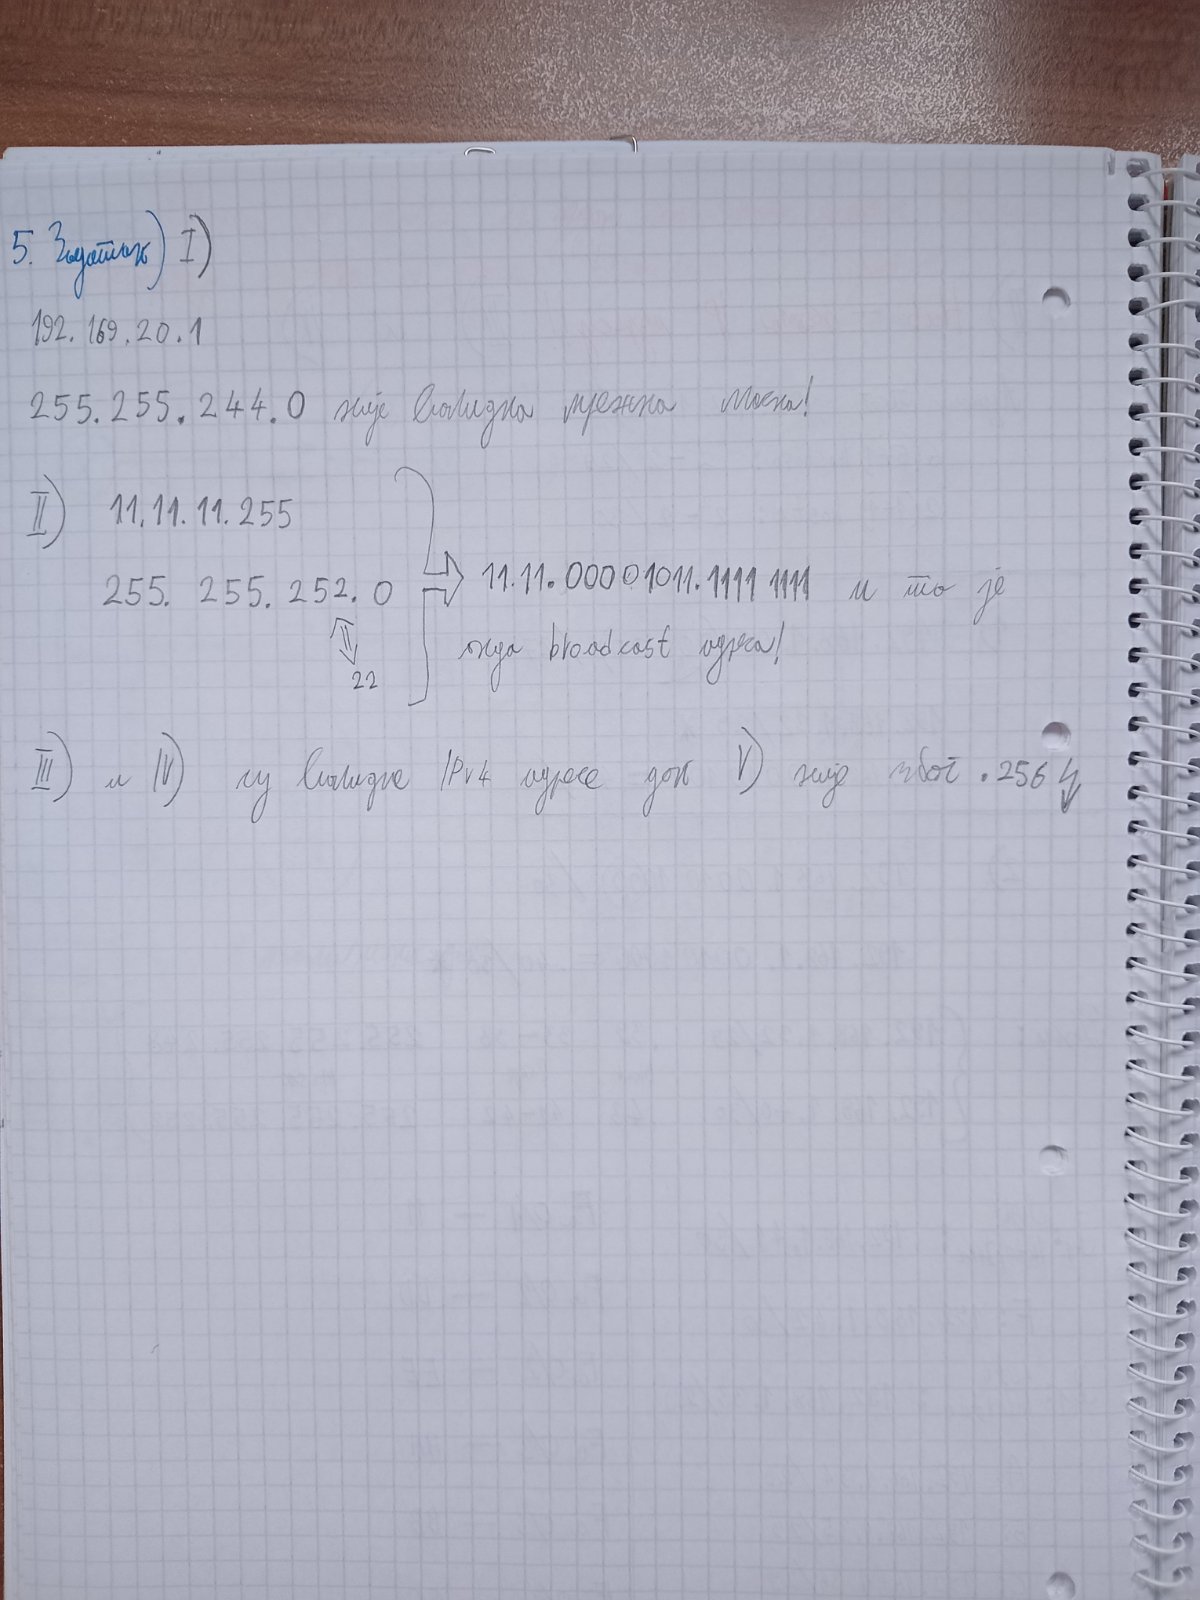 5. Задатак) I)
192.169.20.1
255.255.244.0 није валидна мрежна маска!
II) 11.11.11.255
255. 255. 252. 0 ⇒ 11.11.00001011.1111 1111 и то је
22 њда broadcast адреса!
III) и IV) су валидне IPv4 адресе док V) није због .256